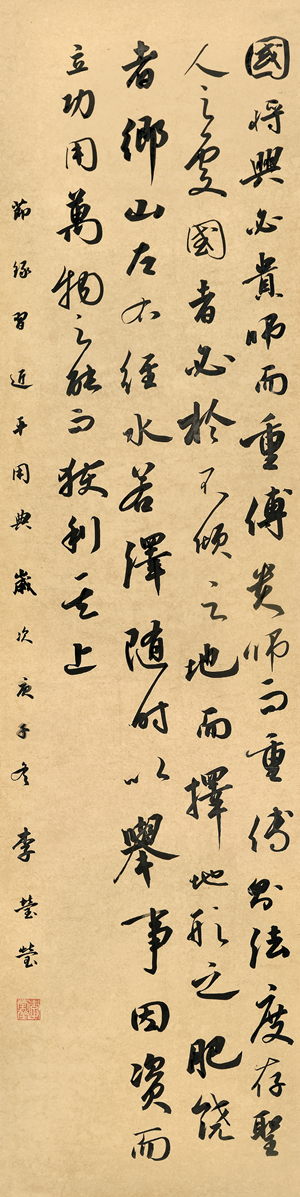 國將興必貴師而重傅貴師而重傅則法度存聖
人之處國者必於不傾之地而擇地形之肥饒
者鄉山左右經水若澤随时以舉事因資而
立功用萬物之能而獲利其上
節録習近平用典歲次庚子冬李瑩瑩